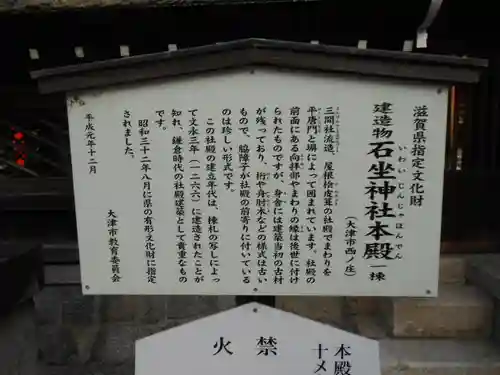 滋賀県指定文化財
建造物 石坐神社本殿 一棟
いわいじんじゃほんでん
(大津市西ノ庄)
三間社流造、屋根桧皮葺の社殿でまわりを
平唐門と塀によって囲まれています。社殿の
前面にある向拝部やまわりの縁は後世に付け
られたものですが、身舎には建築当初の古材
が残っており、桁や舟肘木などの様式は古い
もので、脇障子が社殿の前寄りに付いている
のは珍しい形式です。
この社殿の建立年代は、棟札の写しによっ
て文永三年(一二六六)に建造されたことが
知れ、鎌倉時代の社殿建築として貴重なもの
です。
昭和三十二年八月に県の有形文化財に指定
されました。
平成元年十二月
大津市教育委員会
本殿
十メ
禁
火